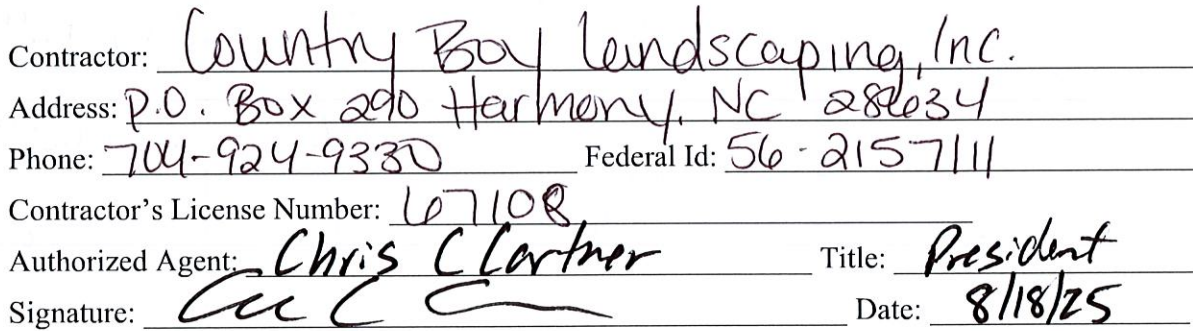 Contractor: Country Boy Landscaping, Inc.
Address: P.O. Box 290 Harmony, NC 28634
Phone: 704-924-9330 Federal Id: 56-2157111
Contractor's License Number: 67108
Authorized Agent: Chris C Cartner Title: President
Signature: Date: 8/18/25